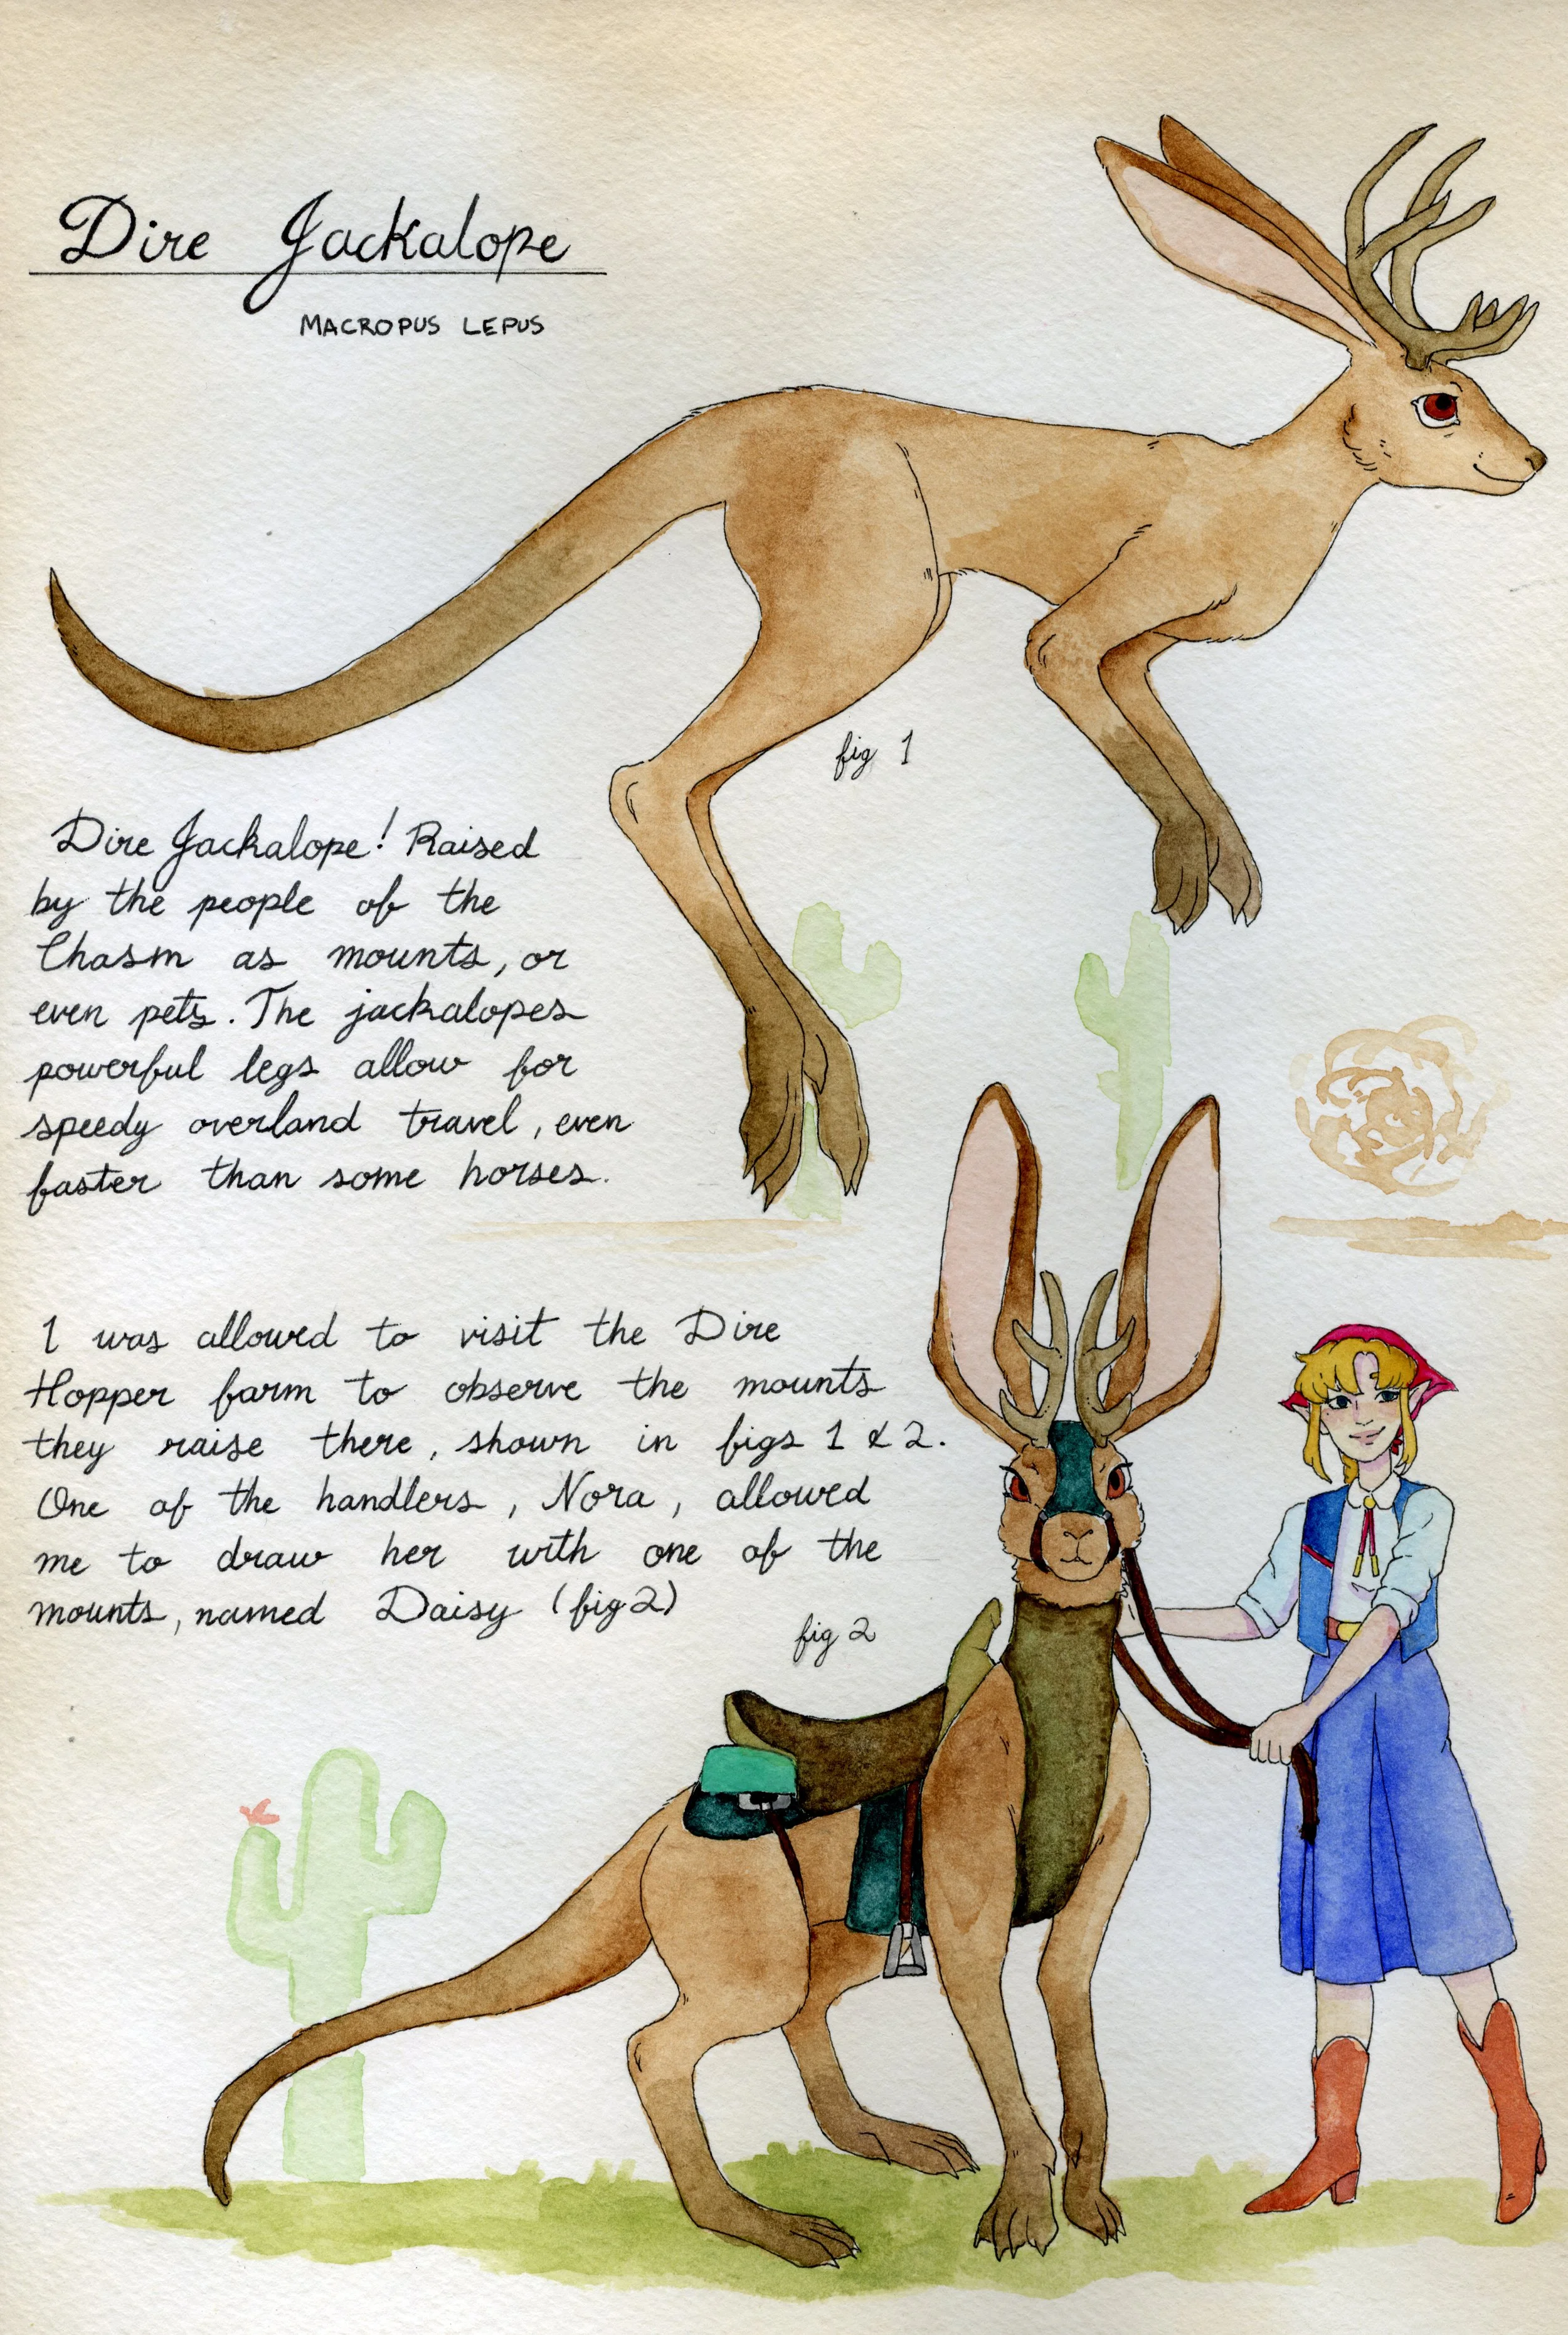 Dire Jackalope
MACROPUS LEPUS
fig 1
Dire Jackalope! Raised
by the people of the
Chasm as mounts, or
even pets. The jackalopes
powerful legs allow for
speedy overland travel, even
faster than some horses.
I was allowed to visit the Dire
Hopper farm to observe the mounts
they raise there, shown in figs 1 & 2.
One of the handlers, Nora, allowed
me to draw her with one of the
mounts, named Daisy (fig 2)
fig 2